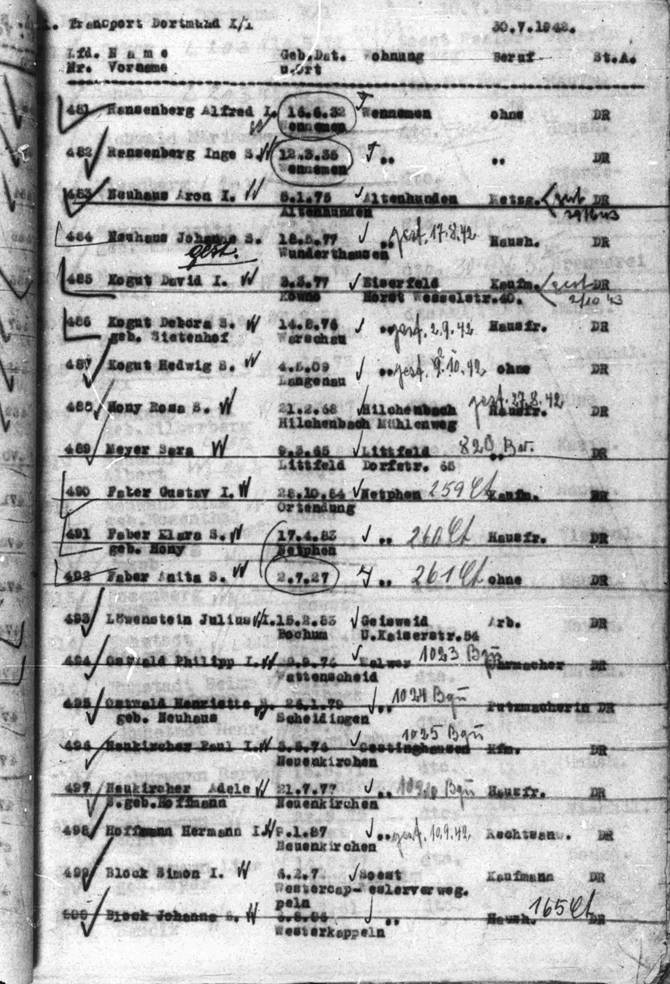 Transport Dortmund X/1 30.7.1942.
Lfd. Name Geb.Dat. Wohnung Beruf St.A.
Nr. Vorname u.Ort
481 Ransenberg Alfred I. 16.6.32 Wennemen ohne DR
Wennemen
482 Ransenberg Inge S. W 12.3.35 ,, ,, DR
Wennemen
483 Neuhaus Aron I. W .1.75 Altenhunden Metzg. gest DR
Altenhunden
484 Neuhaus Johanna S. 18.5.77 ,, gest. 17.8.42 Haush. DR
gest. Wunderthausen
485 Kogut David I. W 3.3.77 Eiserfeld Kaufm. gest DR
Kowno Horst Wesselstr.40. 2/10 43
486 Kogut Debora S. W 14.8.76 ,, gest. 2.9.42 Hausfr. DR
geb. Sietenhof Warschau
487 Kogut Hedwig S. W 4.5.09 ,, gest. 9.10.42 ohne DR
Langenau
488 Hony Rosa S. W 21.2.68 Hilchenbach gest. 27.8.42 Hausfr. DR
Hilchenbach Mühlenweg
489 Meyer Sara W .3.65 Littfeld 820 DR
Littfeld Dorfstr. 65
490 Faber Gustav I. W 28.10.84 Netphen 259 Ct Kaufm. DR
Ortendung
491 Faber Klara S. W 17.4.83 ,, 260 Ct Hausfr. DR
geb. Hony Netphen
492 Faber Anita S. W 2.7.27 ,, 261 Ct ohne DR
493 Löwenstein Julius I. 15.2.83 Geisweid Arb. DR
Bochum U.Kaiserstr.54
494 Ostwald Philipp I. W .76 1023 Bqu DR
Wattenscheid
495 Ostwald Henriette S. .1.79 ,, 1024 Bqu Putzmacherin DR
geb. Neuhaus Scheidingen
1025 Bqu
496 Neukircher Paul I. W .76 Oestinghausen Kfm. DR
Neuenkirchen
497 Neukircher Adele W 21.7.77 ,, Bqu Hausfr. DR
S.geb.Hoffmann Neuenkirchen
498 Hoffmann Hermann I. W .1.87 ,, gest. 10.9.42 Rechtsanw. DR
Neuenkirchen
499 Block Simon I. W 4.2.7 Soest Kaufmann DR
Westercap- eslerverweg.
peln
500 Block Johanna S. W ,, Haush. 165 Ct DR
Westerkappeln